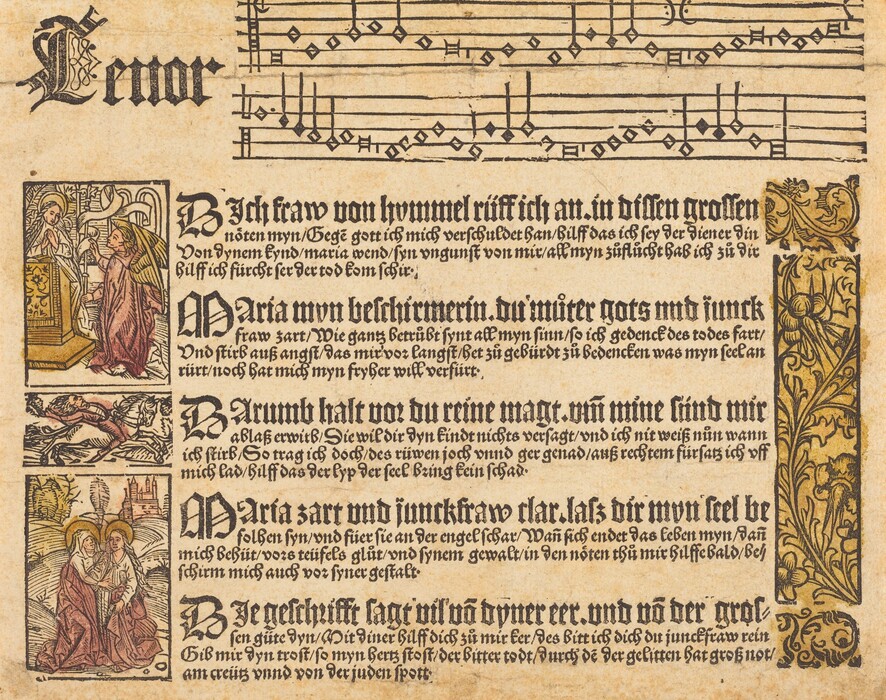 Tenor
DIch fraw von hymmel rüff ich an. in dissen grossen
nöten myn/Gegē gott ich mich verschuldet han/hilff das ich sey der diener din
Von dynem kynd/maria wend/syn vngunst von mir/all myn zůflůcht hab ich zů dir
hilff ich fürcht ser der tod kom schir.
MAria myn beschirmerin. du můter gots vnd junck
fraw zart/Wie gantz betrübt synt all myn sinn/so ich gedenck des todes fart/
Vnd stirb auß angst/das mir vor langst/het zů gebürdt zů bedencken was myn seel an
rürt/noch hat mich myn fryher will verfürt.
DArumb halt vor du reine magt. vm̄ mine sünd mir
ablaß erwirb/Sie wil dir dyn kindt nichts versagt/vnd ich nit weiß nůn wann
ich stirb/So trag ich doch/des rüwen joch vnnd ger genad/auß rechtem fürsatz ich vff
mich lad/hilff das der lyp der seel bring kein schad.
MAria zart vnd junckfraw clar. lasz dir myn seel be
folhen syn/vnd füer sie an der engel schar/Wañ sich endet das leben myn/dañ
mich behüt/vors teüfels glůt/vnd synem gewalt/in den nöten thů mir hilffe bald/be/
schirm mich auch vor syner gestalt.
DIe geschrifft sagt vil vō dyner eer. vnd vō der gros⸗
sen güte dyn/Mit diner hilff dich zů mir ker/des bitt ich dich du junckfraw rein
Gib mir dyn trost/so myn hertz stost/der bitter todt/durch dē der gelitten hat groß not/
am creütz vnnd von der juden spott.